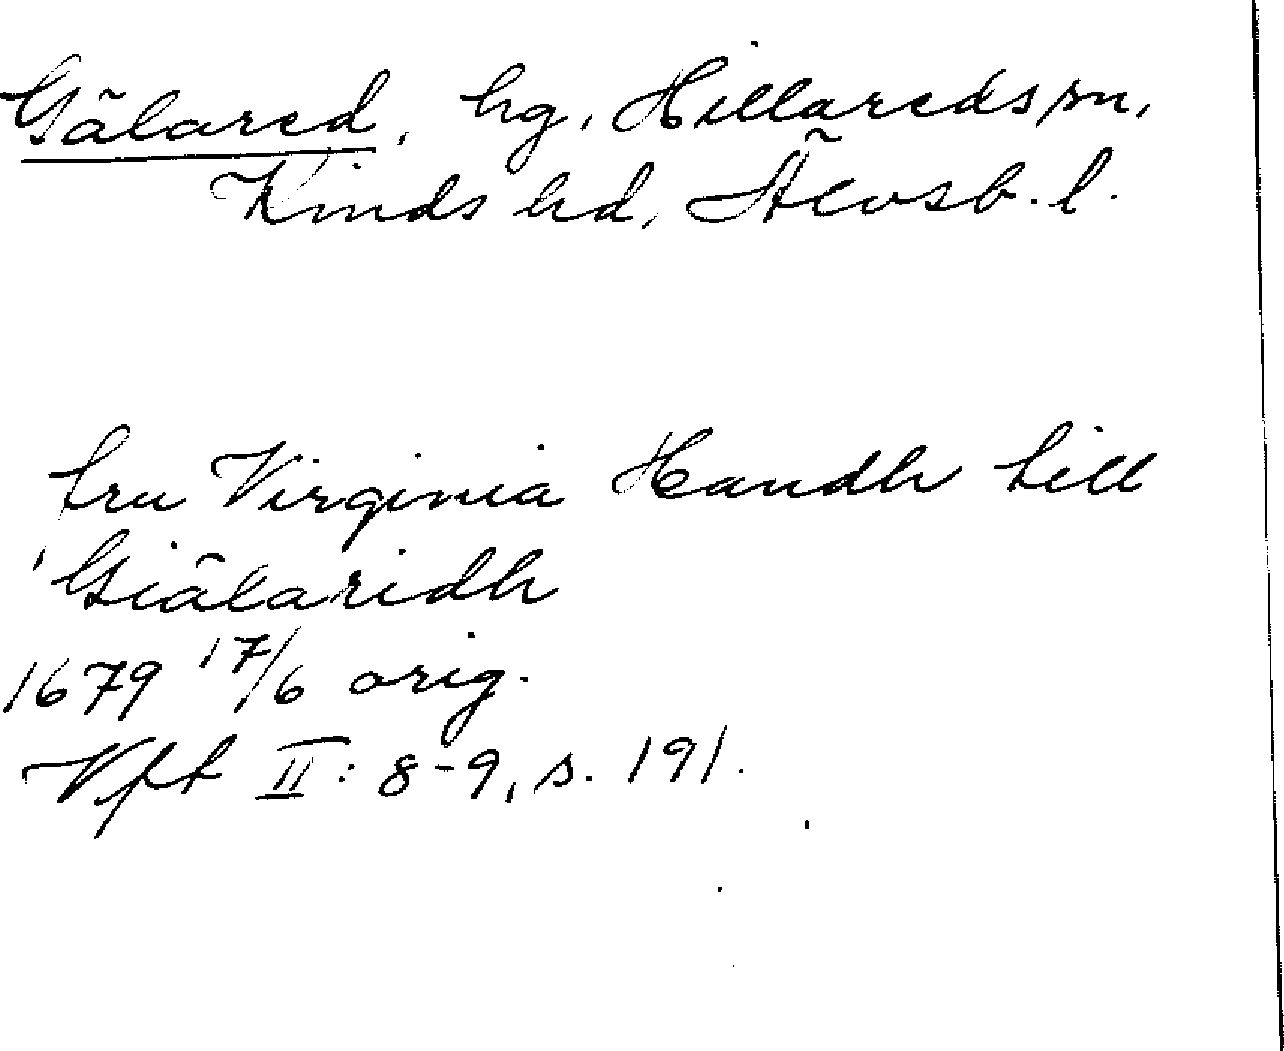 Gälared, hg, Hillareds sn,
Kinds hd, Älvsb. l.
fru Virginia Handh till
Giälaridh
1679 17/6 orig.
Vft II: 8-9, s. 191.